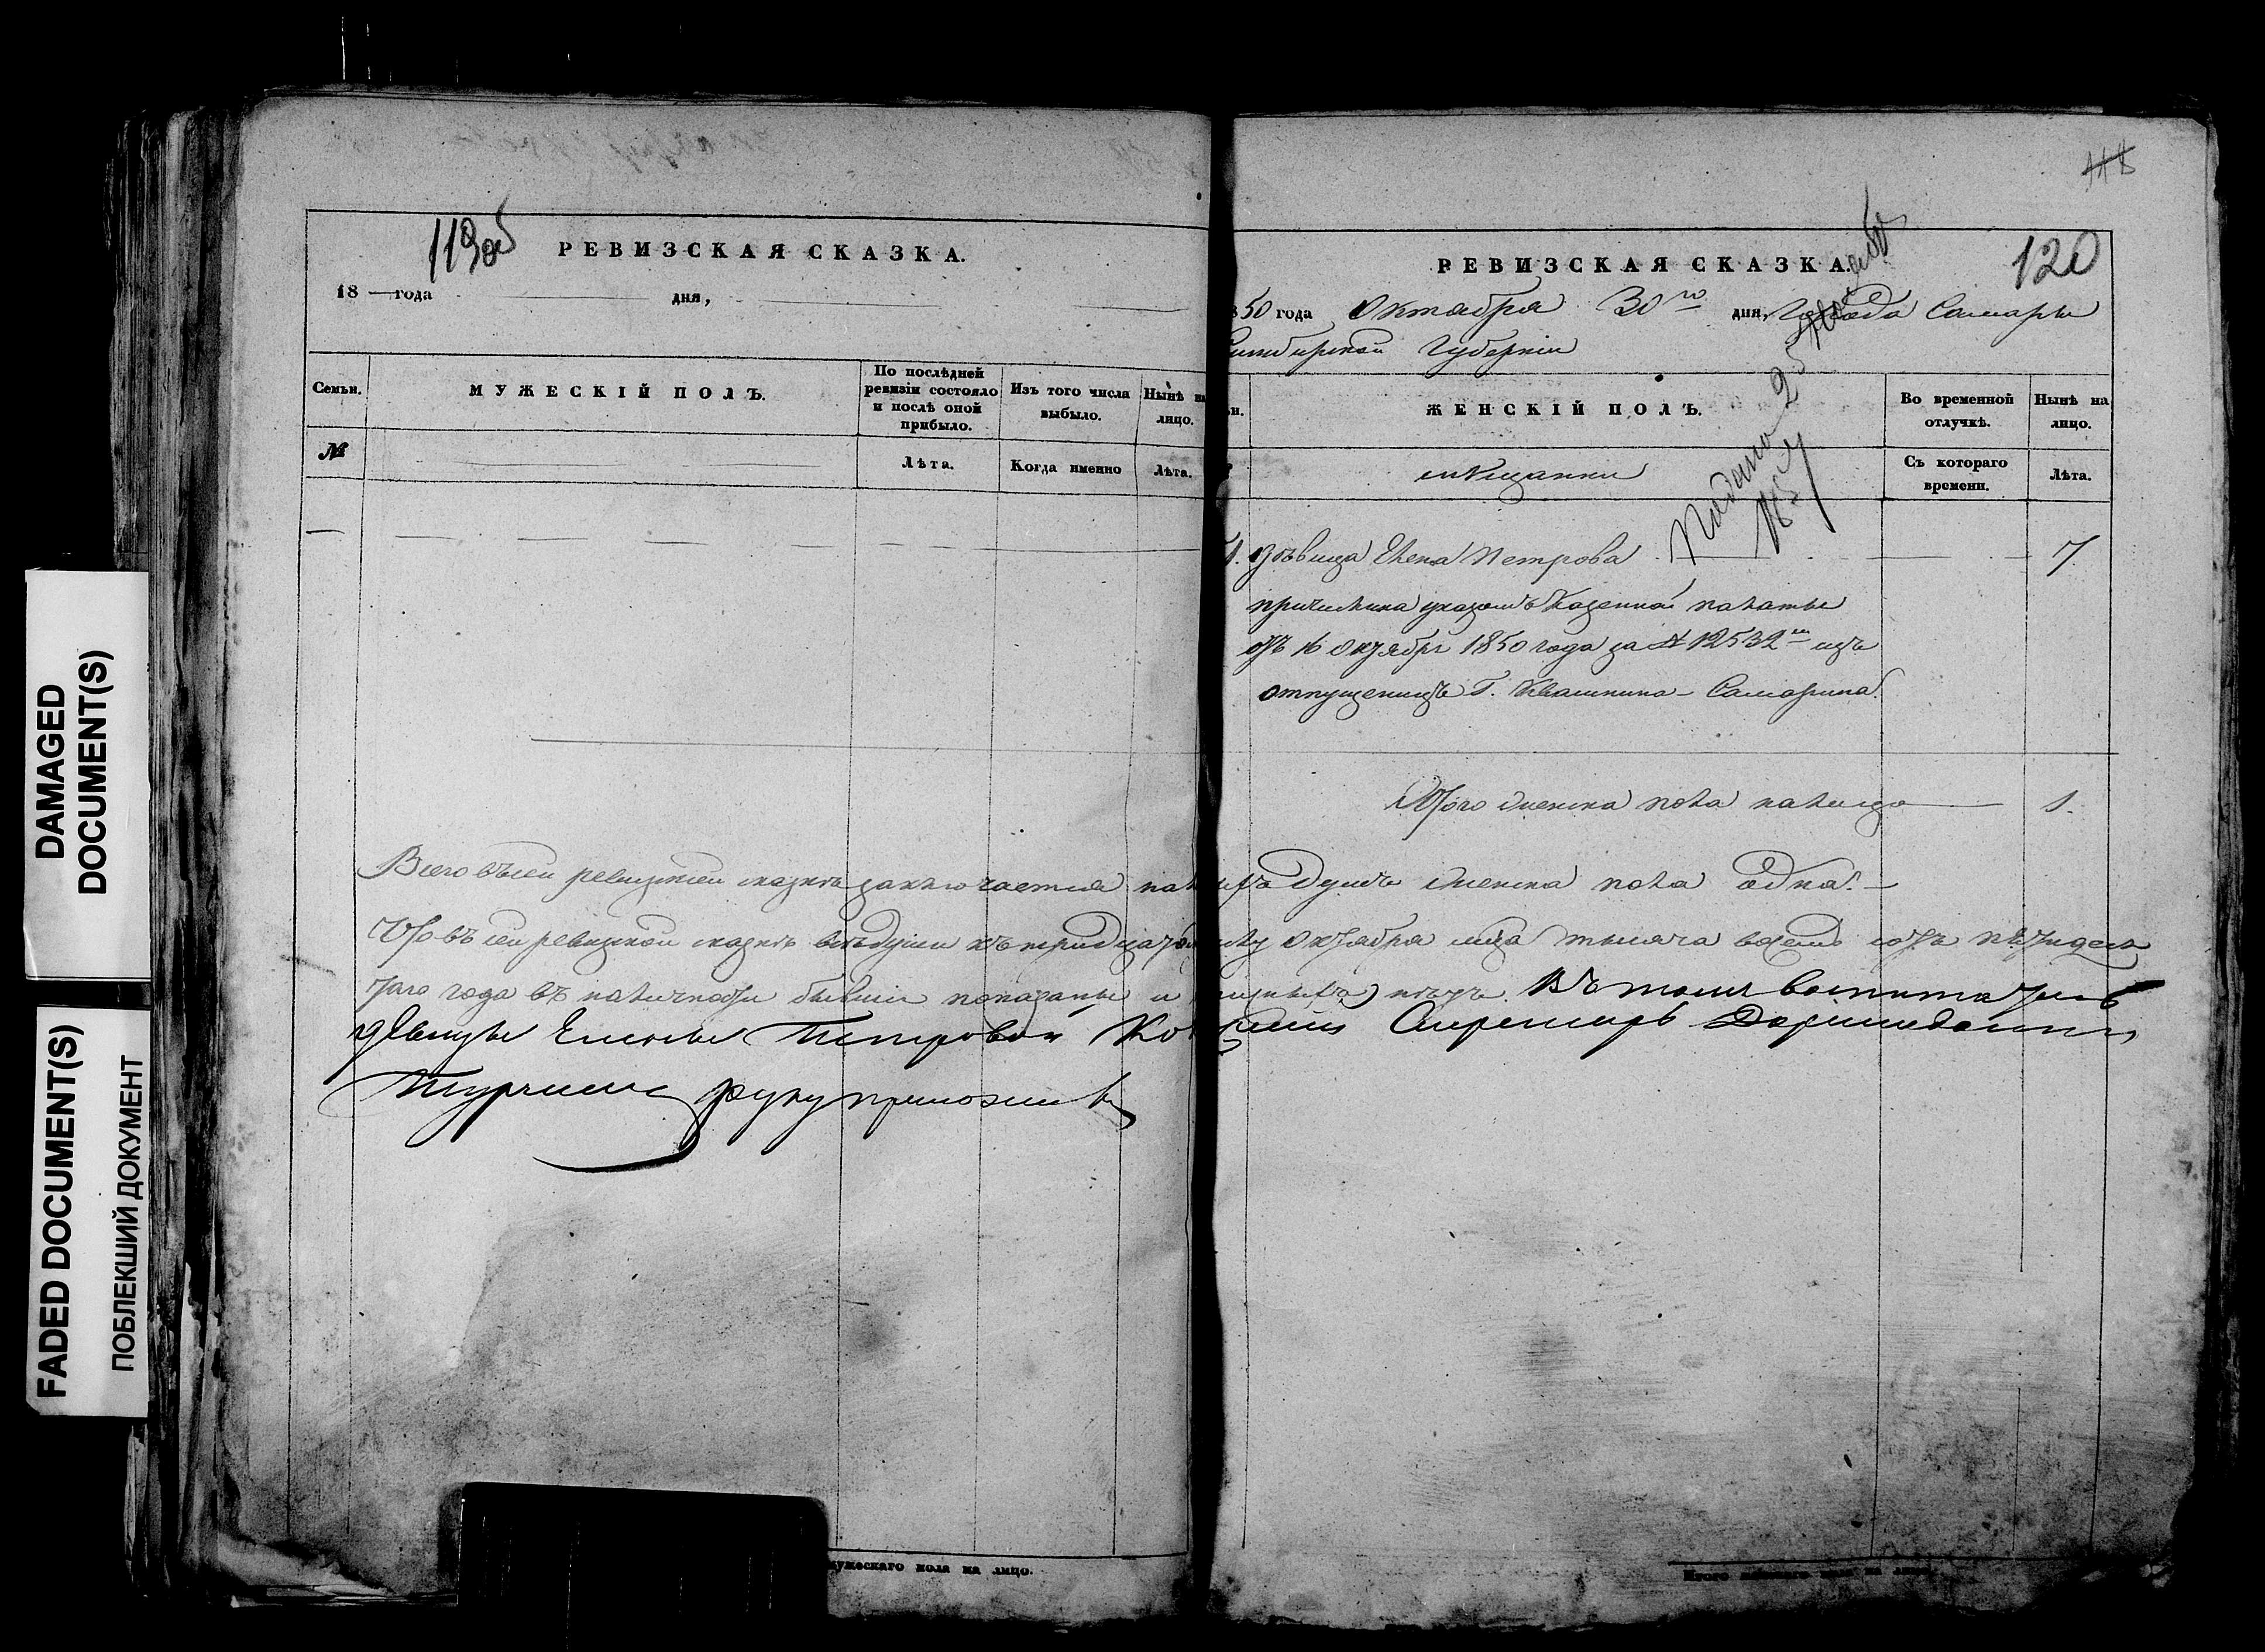 DAMAGED
DOCUMENT(S)
FADED DOCUMENT(S)
ПОБЛЕКШИЙ ДОКУМЕНТ
119об
РЕВИЗСКАЯ СКАЗКА.
18 — года дня,
Семьи.
МУЖЕСКІЙ ПОЛЪ.
По послѣдней
ревизіи состояло
и послѣ оной
прибыло.
Изъ того числа
выбыло.
Нынѣ на
лицо.
№
Лѣта.
Когда именно
Лѣта.
118
120
РЕВИЗСКАЯ СКАЗКА.
50 года Октября 30го дня, Города Самары
Симбирской Губерніи
Подано 25 Ноября
№
ЖЕНСКІЙ ПОЛЪ.
Во временной
отлучкѣ.
Нынѣ на
лицо.
мѣщанки
Съ котораго
времени.
Лѣта.
1. дѣвица Елена Петрова 7.
причислена указомъ Казенной палаты
отъ 16 Октября 1850 года за № 12532м изъ
отпущеницъ Г. Квашнина-Самарина.
Итого женска пола налицо 1.
Всего въ сей ревизской сказкѣ заключается налицо душъ женска пола одна.
Что въ сей ревизской сказкѣ всѣ души къ тридцатому Октября мца тысяча восемь сотъ пятидеся
таго года въ наличности бывшія показаны и нѣтъ. Въ томъ воспитатель
дѣвицы Елены Петровой
руку приложилъ
мужескаго пола на лицо.
Итого женскаго пола на лицо.